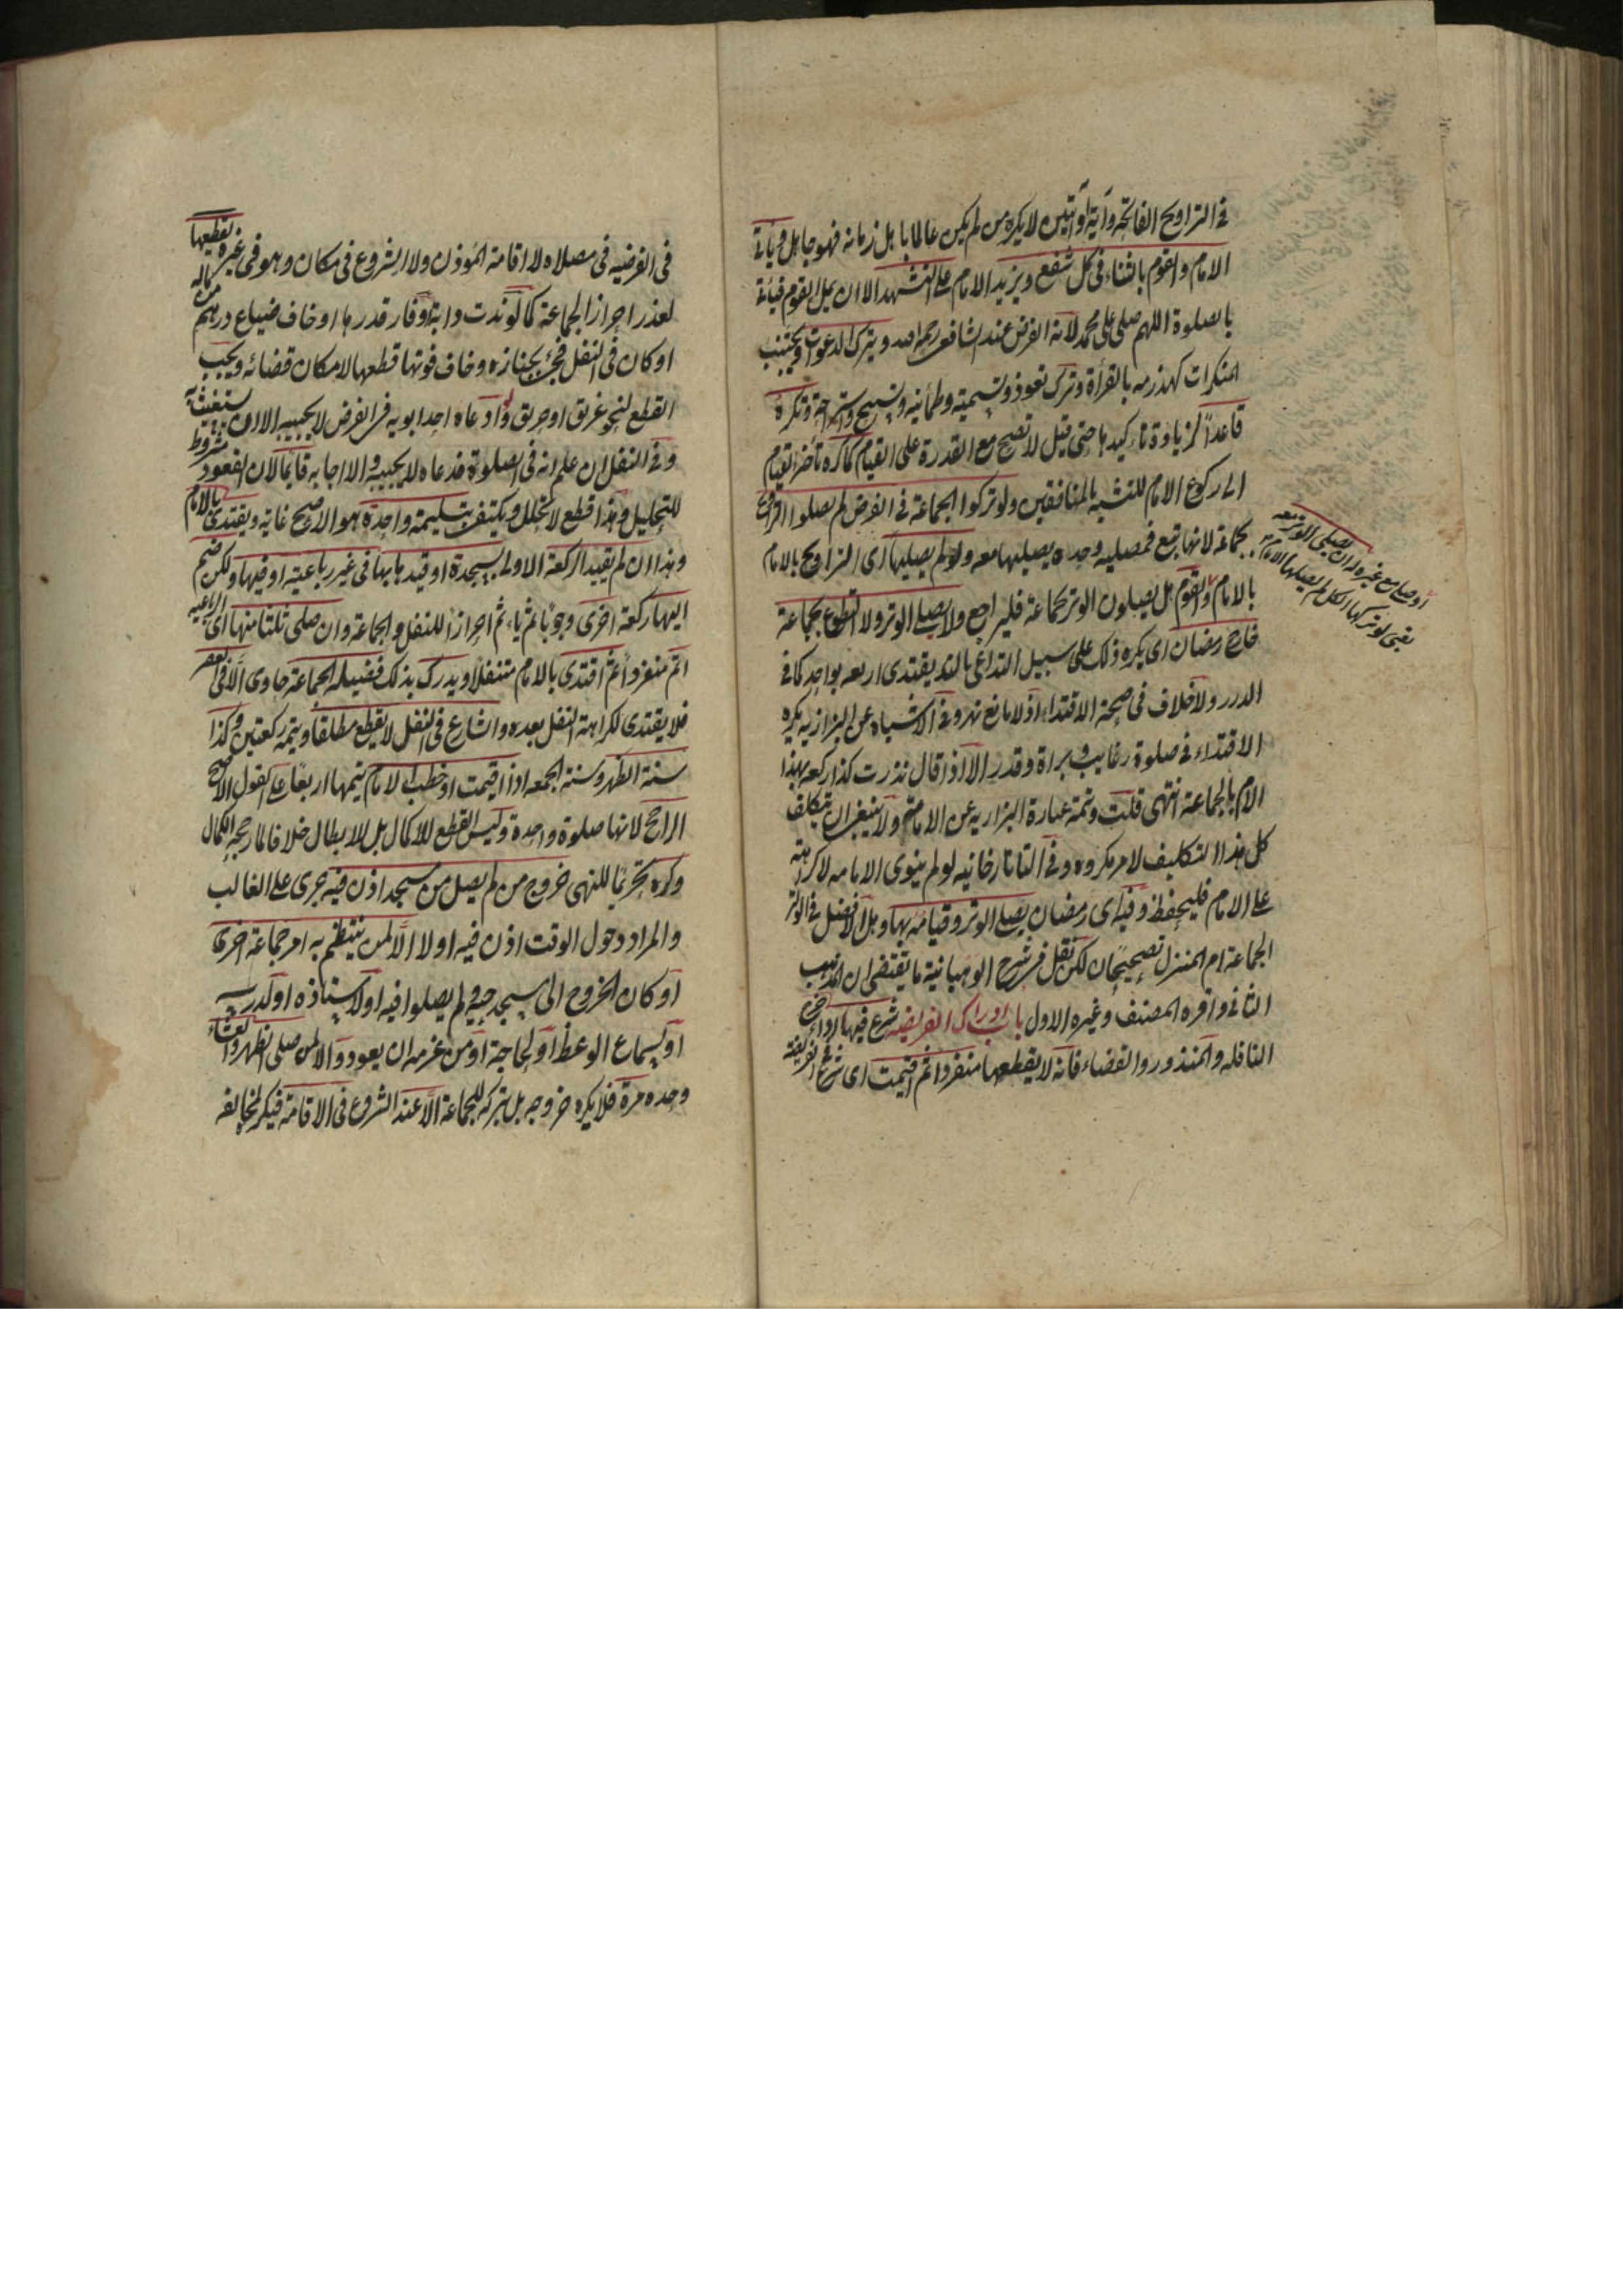 في التراويح الفاتحة وآية أو آيتين لا يكره من لم يكن عالما باهل زمانه فهو جاهل ويأتي
الامام والقوم بالثناء في كل شفع ويزيد الامام على التشهد الا ان يمل القوم فيأتي
بالصلوة اللهم صلي على محمد لانه الفرض عند الشافعي رحمه الله ويترك الدعوات ويجتنب
المنكرات كهذرمه بالقرأة وترك تعوذ وتسميته وطمأنينه وتسبيح واستراحة وتكره
قاعداً لزيادة تاءكيدها حتى قيل لا تصح مع القدرة على القيام كما كره تأخر القيام
الى ركوع الامام للتشبه بالمنافقين ولو تركوا الجماعة في الفرض لم يصلوا التراويح
بجماعة لانها تبع فمصليه وحده يصليها معه ولو لم يصليها اى التراويح بالامام
أو صلى مع غيره له ان يصلي الوتر معه
بقى لو تركها الكل لم يصليها الامام
بالامام والقوم هل يصلون الوتر بجماعة فليراجع ولا يصلي الوتر ولا التطوع بجماعة
خارج رمضان اى يكره ذلك على سبيل التداعي بان يقتدى اربعه بواحد كما في
الدرر ولا خلاف في صحة الاقتداء اذ لا مانع نهر وفي الاشباه عن البزازيه يكره
الاقتداء في صلوة رغايب وبراة وقدر الا اذا قال نذرت كذا ركعه بهذا
الامام بالجماعة انتهى قلت وتتمة عبارة البزازيه عن الامامة ولا ينبغي ان يتكلف
كل هذا التكليف لامر مكروه وفي التاتارخانيه لو لم ينوى الامامه لا كراهة
على الامام فليحفظ وفيه اى رمضان يصلي الوتر وقيامه بها وهل الافضل في الوتر
الجماعة ام المنزل تصحيحان لكن نقل في شرح الوهبانية ما يقتضى ان المذهب
الثاني واقره المصنف وغيره الاول باب ادراك الفريضه شرع فيها اداء خرج
النافله والمنذور والقضاء فانه لا يقطعها منفردا ثم اقيمت اى شرع في الفريضة
في الفرضيه في مصلاه لا اقامة المؤذن ولا الشروع في مكان وهو في غيره يقطعها
لعذر احراز الجماعة كما لو ندت دابة او فار قدرها او خاف ضياع درهم من ماله
او كان في النفل فجئ بجنازه وخاف فوتها قطعها لامكان قضائه ويجب
القطع لنحو غريق او حريق ولو دعاه احد ابويه في الفرض لا يجيبه الا ان يستغيث به
وفي النفل ان علم انه في الصلوة فدعاه لا يجيبه والا اجابه قايما لان القعود مشروط
للتحليل وهذا قطع لا تحلل ويكتفي بتسليمة واحدة هو الاصح غايه ويقتدى بالامام
وهذا ان لم يقيد الركعة الاولى بسجدة او قيدها بها في غير رباعية او فيها ولكن ضم
اليها ركعة اخرى وجوبا ثم ياءتم احرازا للنفل والجماعة وان صلى ثلثا منها اى الرباعيه
اتم منفردا ثم اقتدى بالامام متنفلا ويدرك بذلك فضيله الجماعة حاوى الا في العصر
فلا يقتدى لكراهة النفل بعده والشارع في النفل لا يقطع مطلقا ويتمه ركعتين وكذا
سنة الظهر وسنة الجمعه اذا اقيمت او خطب الامام يتمها اربعا على القول الاصح
الراجح لانها صلوة واحدة وليس القطع للاكمال بل للابطال خلافا لما رجحه الكمال
وكره تحريما للنهى خروج من لم يصل من مسجد اذن فيه جرى على الغالب
والمراد دخول الوقت اذن فيه او لا الا لمن ينتظم به امر جماعة اخرى
او كان الخروج الى مسجد حيه ولم يصلوا فيه او لاستاذه او لدرسه
او لسماع الوعظ او لحاجة او من عزمه ان يعود والا لمن صلى الظهر والعشاء
وحده مرة فلا يكره خروجه بل بتركه للجماعة الا عند الشروع في الاقامة فيكره لمخالفة